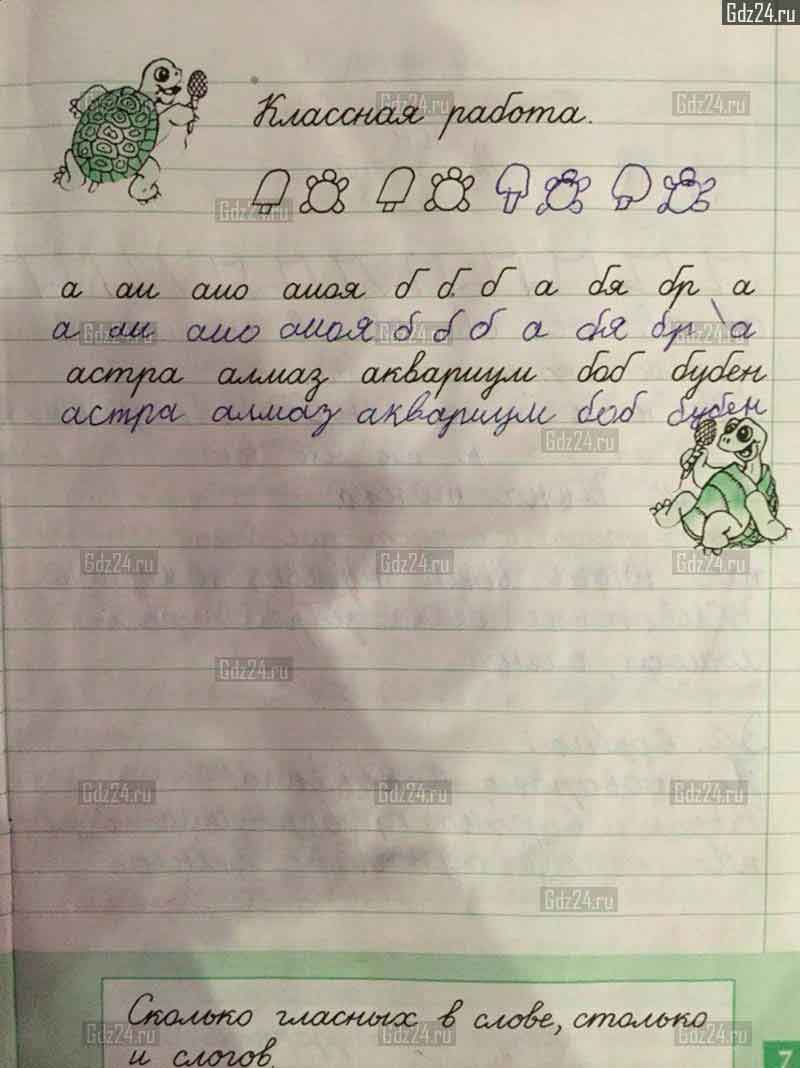 Gdz24.ru
Классная работа.
а аи аио аиоя б б б а бя бр а
а аи аио аиоя б б б а бя бр а
астра алмаз аквариум боб бубен
астра алмаз аквариум боб бубен
Сколько гласных в слове, столько
и слогов.
7